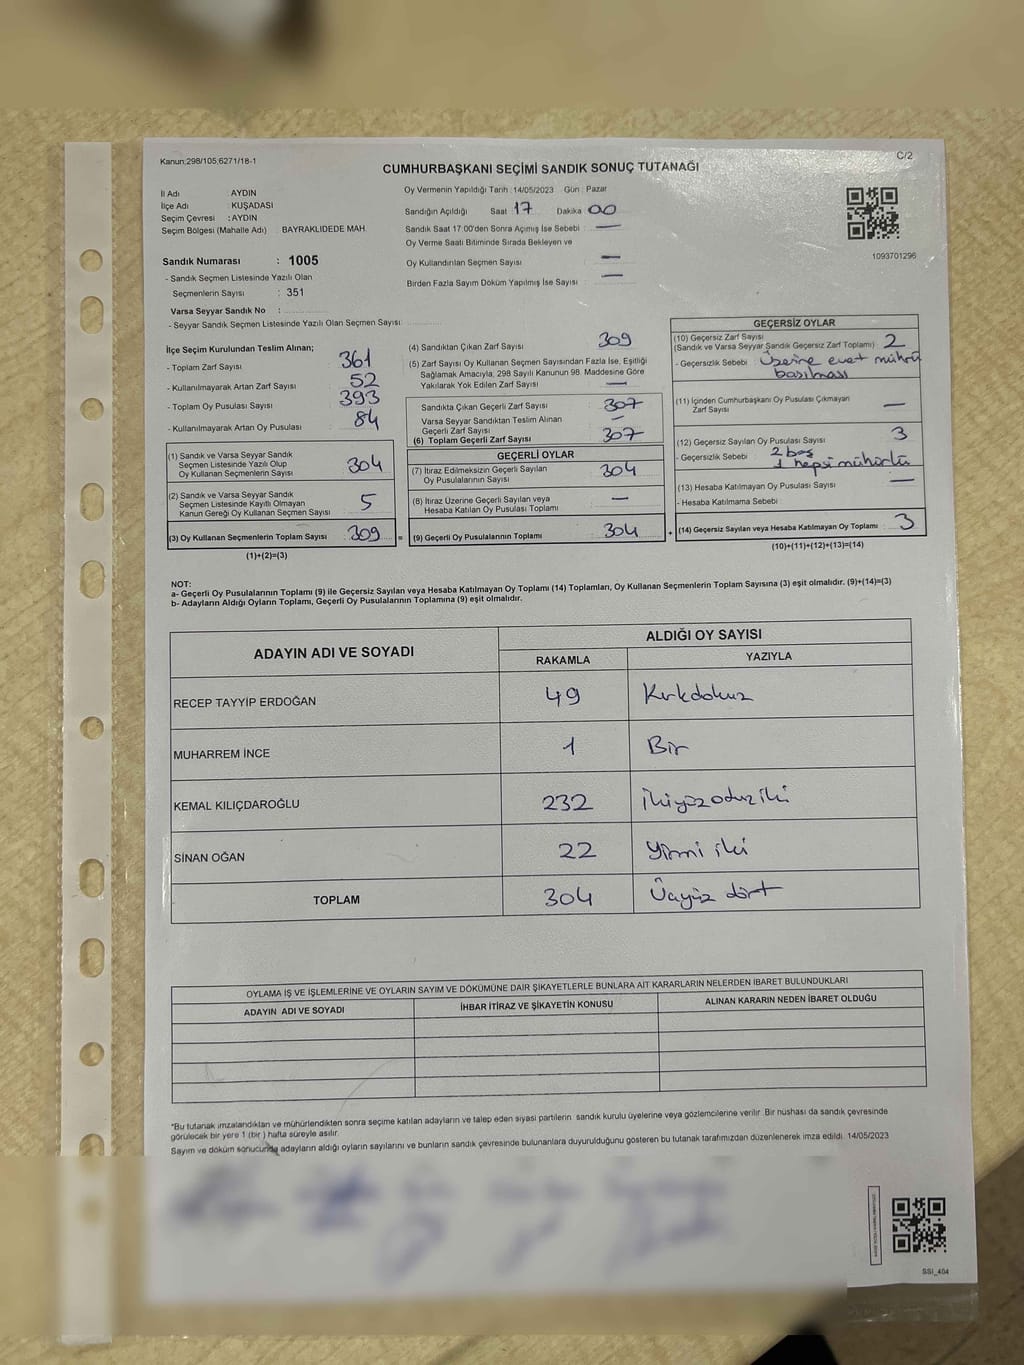 Kanun:298/105;6271/18-1
C/2
CUMHURBAŞKANI SEÇİMİ SANDIK SONUÇ TUTANAĞI
İl Adı : AYDIN
İlçe Adı : KUŞADASI
Seçim Çevresi : AYDIN
Seçim Bölgesi (Mahalle Adı) BAYRAKLIDEDE MAH.
Sandık Numarası : 1005
- Sandık Seçmen Listesinde Yazılı Olan
Seçmenlerin Sayısı : 351
Varsa Seyyar Sandık No :
- Seyyar Sandık Seçmen Listesinde Yazılı Olan Seçmen Sayısı:
Oy Vermenin Yapıldığı Tarih : 14/05/2023 Gün : Pazar
Sandığın Açıldığı Saat 17 Dakika 00
Sandık Saat 17:00'den Sonra Açımış İse Sebebi —
Oy Verme Saati Bitiminde Sırada Bekleyen ve
Oy Kullandırılan Seçmen Sayısı —
Birden Fazla Sayım Döküm Yapılmış İse Sayısı —
1093701296
İlçe Seçim Kurulundan Teslim Alınan;
- Toplam Zarf Sayısı 361
- Kullanılmayarak Artan Zarf Sayısı 52
- Toplam Oy Pusulası Sayısı 393
- Kullanılmayarak Artan Oy Pusulası 84
(1) Sandık ve Varsa Seyyar Sandık
Seçmen Listesinde Yazılı Olup
Oy Kullanan Seçmenlerin Sayısı 304
(2) Sandık ve Varsa Seyyar Sandık
Seçmen Listesinde Kayıtlı Olmayan
Kanun Gereği Oy Kullanan Seçmen Sayısı 5
(3) Oy Kullanan Seçmenlerin Toplam Sayısı 309 =
(1)+(2)=(3)
(4) Sandıktan Çıkan Zarf Sayısı 309
(5) Zarf Sayısı Oy Kullanan Seçmen Sayısından Fazla İse, Eşitliği
Sağlamak Amacıyla, 298 Sayılı Kanunun 98. Maddesine Göre
Yakılarak Yok Edilen Zarf Sayısı —
Sandıkta Çıkan Geçerli Zarf Sayısı 307
Varsa Seyyar Sandıktan Teslim Alınan
Geçerli Zarf Sayısı —
(6) Toplam Geçerli Zarf Sayısı 307
GEÇERLİ OYLAR
(7) İtiraz Edilmeksizin Geçerli Sayılan
Oy Pusulalarının Sayısı 304
(8) İtiraz Üzerine Geçerli Sayılan veya
Hesaba Katılan Oy Pusulası Toplamı —
(9) Geçerli Oy Pusulalarının Toplamı 304 +
GEÇERSİZ OYLAR
(10) Geçersiz Zarf Sayısı
(Sandık ve Varsa Seyyar Sandık Geçersiz Zarf Toplamı) 2
- Geçersizlik Sebebi : Üzerine evet mührü
basılması
(11) İçinden Cumhurbaşkanı Oy Pusulası Çıkmayan
Zarf Sayısı —
(12) Geçersiz Sayılan Oy Pusulası Sayısı 3
- Geçersizlik Sebebi : 2 boş
1 hepsi mühürlü
(13) Hesaba Katılmayan Oy Pusulası Sayısı —
- Hesaba Katılmama Sebebi
(14) Geçersiz Sayılan veya Hesaba Katılmayan Oy Toplamı 3
(10)+(11)+(12)+(13)=(14)
NOT:
a- Geçerli Oy Pusulalarının Toplamı (9) ile Geçersiz Sayılan veya Hesaba Katılmayan Oy Toplamı (14) Toplamları, Oy Kullanan Seçmenlerin Toplam Sayısına (3) eşit olmalıdır. (9)+(14)=(3)
b- Adayların Aldığı Oyların Toplamı, Geçerli Oy Pusulalarının Toplamına (9) eşit olmalıdır.
ADAYIN ADI VE SOYADI ALDIĞI OY SAYISI
RAKAMLA YAZIYLA
RECEP TAYYİP ERDOĞAN 49 Kırkdokuz
MUHARREM İNCE 1 Bir
KEMAL KILIÇDAROĞLU 232 İkiyüzotuziki
SİNAN OĞAN 22 Yirmi iki
TOPLAM 304 Üçyüz dört
OYLAMA İŞ VE İŞLEMLERİNE VE OYLARIN SAYIM VE DÖKÜMÜNE DAİR ŞİKAYETLERLE BUNLARA AİT KARARLARIN NELERDEN İBARET BULUNDUKLARI
ADAYIN ADI VE SOYADI İHBAR İTİRAZ VE ŞİKAYETİN KONUSU ALINAN KARARIN NEDEN İBARET OLDUĞU
*Bu tutanak imzalandıktan ve mühürlendikten sonra seçime katılan adayların ve talep eden siyasi partilerin sandık kurulu üyelerine veya gözlemcilerine verilir. Bir nüshası da sandık çevresinde
görülecek bir yere 1 (bir) hafta süreyle asılır.
Sayım ve döküm sonucunda adayların aldığı oyların sayılarını ve bunların sandık çevresinde bulunanlara duyurulduğunu gösteren bu tutanak tarafımızdan düzenlenerek imza edildi. 14/05/2023
SSI_404